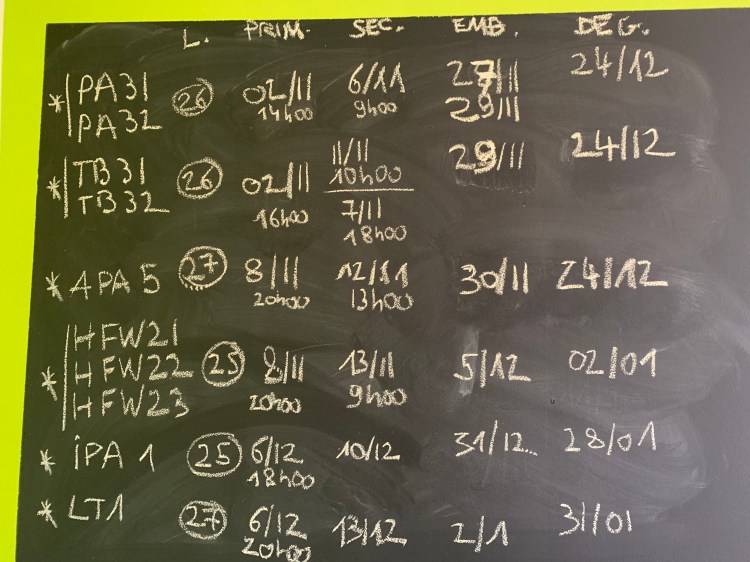 L. PRIM. SEC. EMB. DEG.
* PA31 26 02/11 6/11 27/11 24/12
PA32 14h00 9h00 29/11
* TB31 26 02/11 11/11 29/11 24/12
TB32 16h00 10h00
7/11
18h00
* APA 5 27 8/11 12/11 30/11 24/12
20h00 13h00
HFW21
* HFW22 25 8/11 13/11 5/12 02/01
HFW23 20h00 9h00
* iPA 1 25 6/12 10/12 31/12... 28/01
18h00
* LT1 27 6/12 13/12 2/1 31/01
20h00